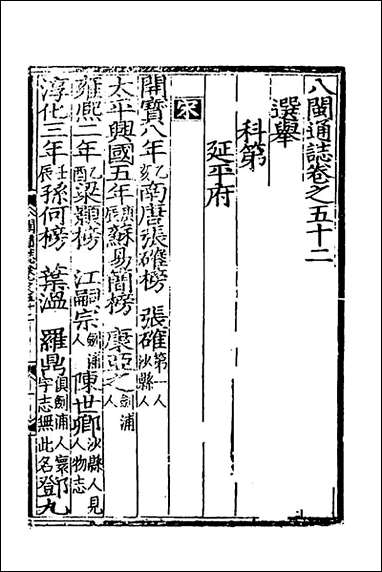 八閩通誌卷之五十二
選舉
科第
延平府
宋
開寶八年乙亥南唐張確榜 張確第一人沙縣人
太平興國五年庚辰蘇易簡榜 康亞之劍浦人
雍熙二年乙酉梁顥榜 江嗣宗劍浦人 陳世卿沙縣人見人物志
淳化三年壬辰孫何榜 葉溫 羅鼎俱劍浦人寰宇志無此名登九